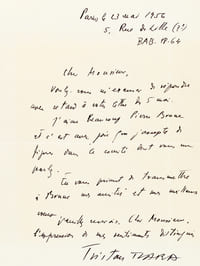 Paris le 23 mai 1956
5, Rue de Lille (7e)
BAB. 18-64
Cher Monsieur,
Veuillez m'excuser de répondre
avec retard à votre lettre du 5 mai.
J'aime beaucoup Pierre
et c'est avec joie que j'accepte de
figurer dans le comité dont vous me
parlez.
En vous priant de transmettre
à mes amitiés et mes meilleurs
Cher Monsieur,
l'expression de mes sentiments distingués
Tristan TZARA